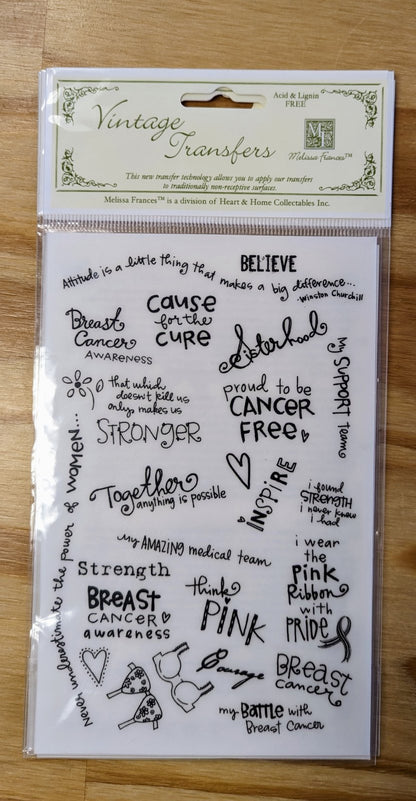 Vintage
Transfers
Acid & Lignin
FREE
MF
Melissa Frances™
This new transfer technology allows you to apply our transfers
to traditionally non-receptive surfaces.
Melissa Frances™ is a division of Heart & Home Collectables Inc.
Attitude is a little thing that makes a big difference...
-Winston Churchill
BELIEVE
Breast
Cancer
AWARENESS
cause
for the
cure
Sisterhood
my SUPPORT team
that which
doesn't kill us
only makes us
STRONGER
proud to be
CANCER
FREE.
Never underestimate the power of WOMEN...
Together
anything is possible
INSPIRE
i found
STRENGTH
i never knew
i had
my AMAZING medical team
Strength
BREAST
CANCER
awareness
think
PINK
i wear
the
Pink
Ribbon
with
PRIDE
Courage
BREAST
cancer
my BATTLE with
Breast Cancer